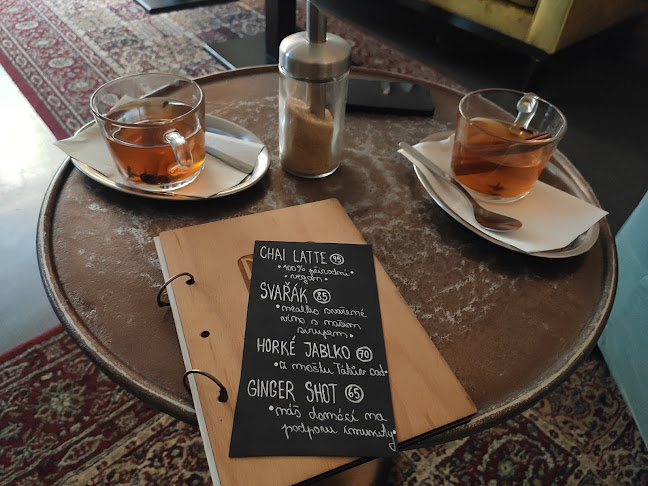 CHAI LATTE 95
• 100% přírodní •
vegan •
SVAŘÁK 85
• nealko svařené
víno s naším
sirupem •
HORKÉ JABLKO 70
• z moštu Tátův sad •
GINGER SHOT 65
• náš domácí na
podporu imunity •